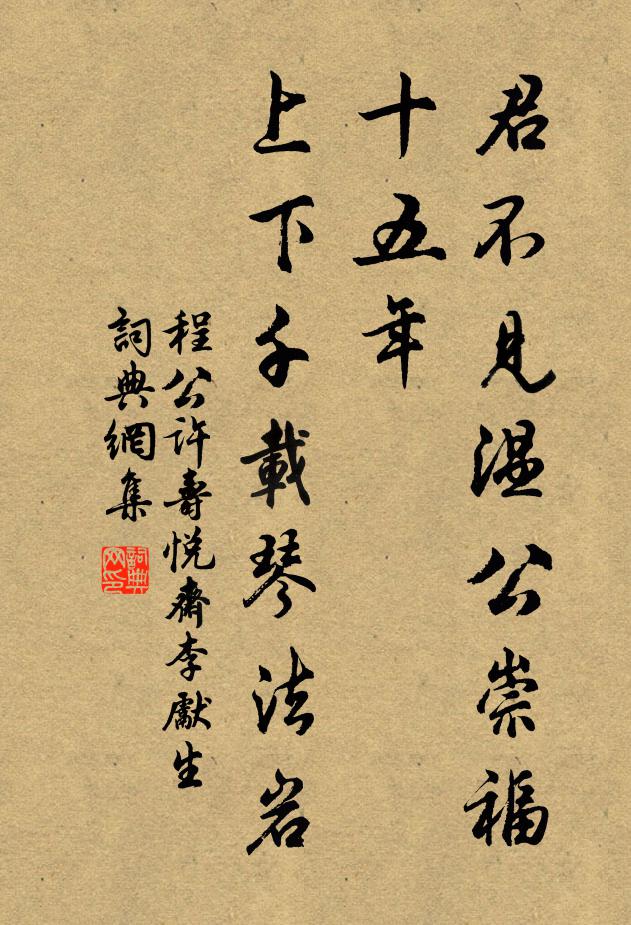 君不見温公崇福
十五年
上下千載琴法岩
程公許壽悦齋李獻生
詞典網集
詞典
网印